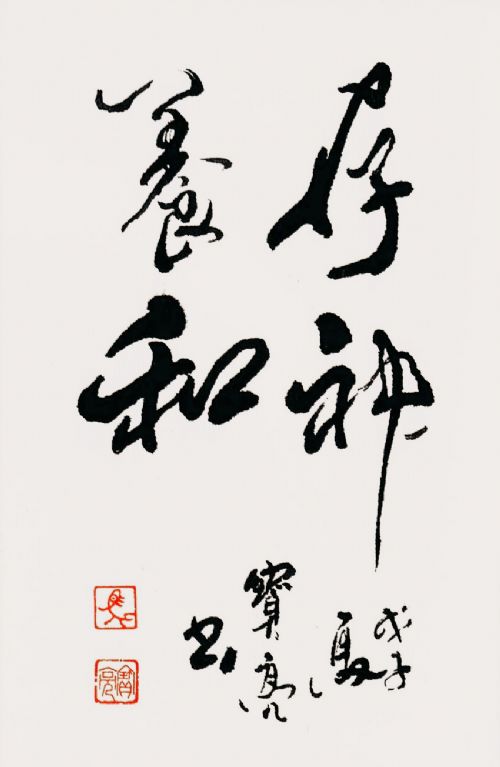 存神
養和
戊子
夏
寶亮
书